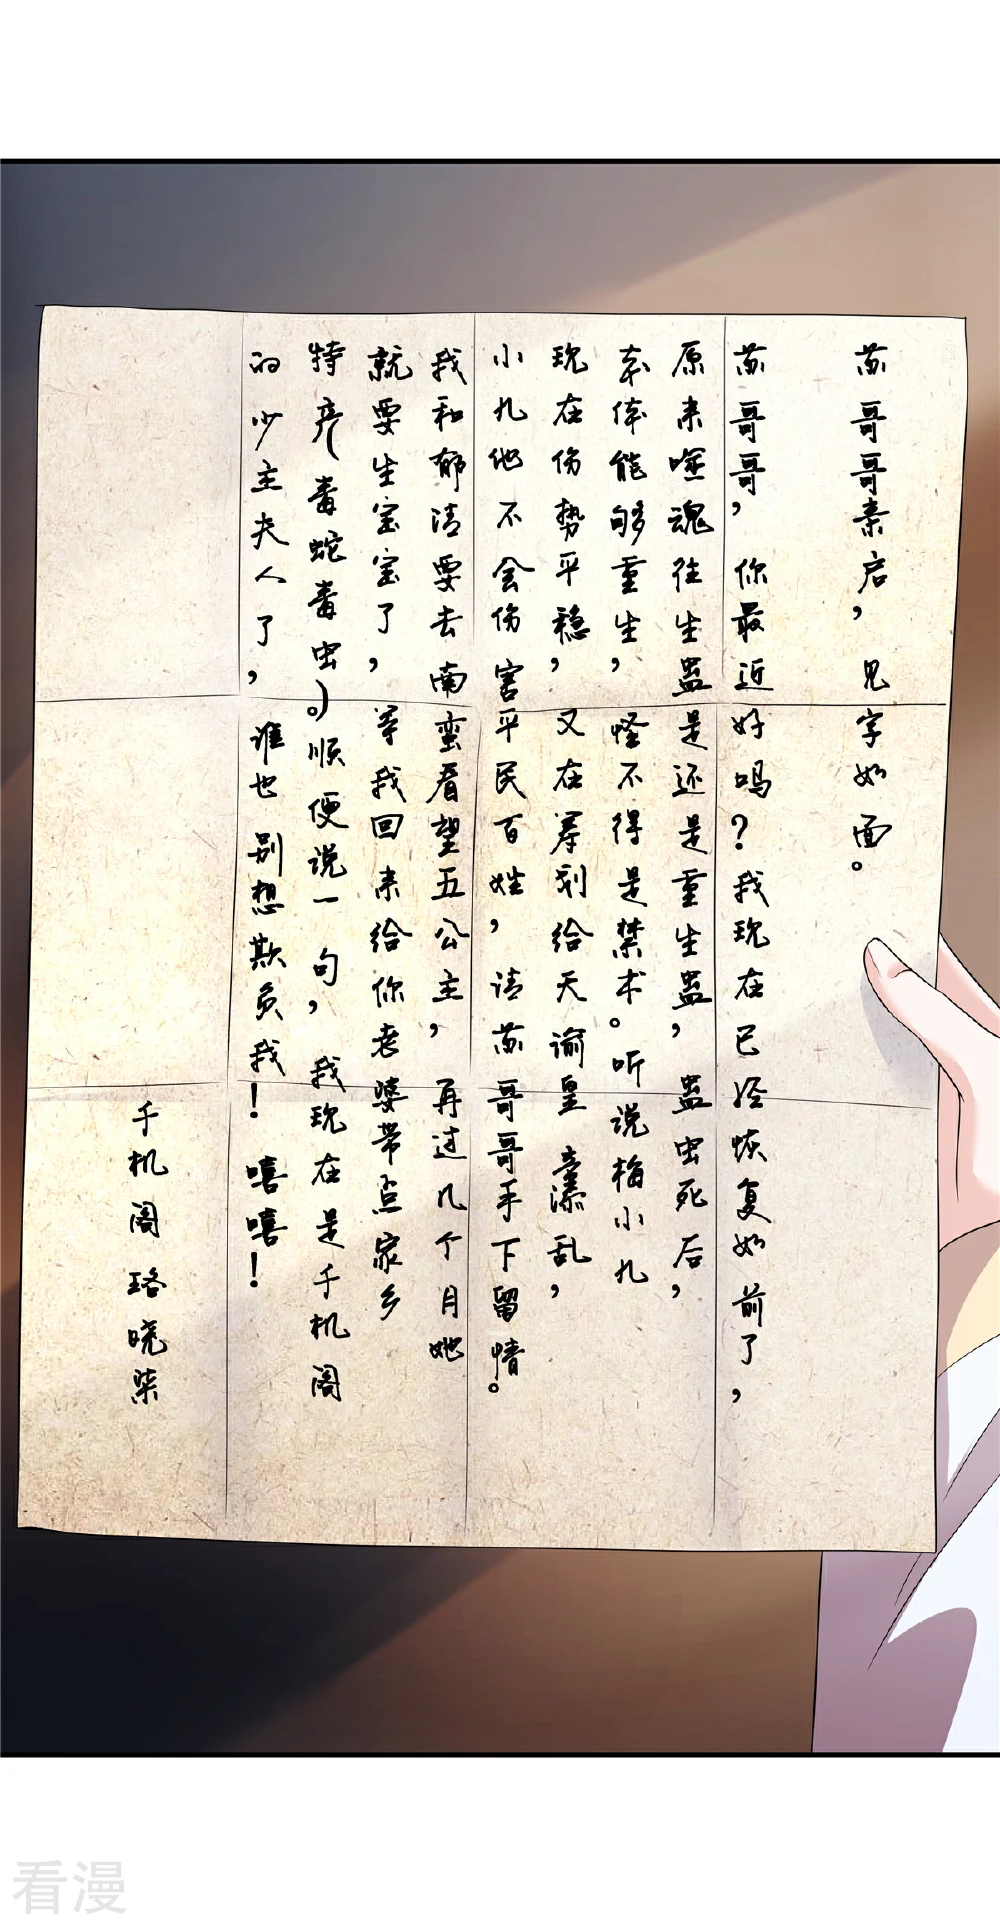 苏哥哥亲启，见字如面。
苏哥哥，你最近好吗？我现在已经恢复如前了，
原来噬魂往生蛊是还是重生蛊，蛊虫死后，
本体能够重生，怪不得是禁术。听说梅小九
现在伤势平稳，又在筹划给天谕皇室添乱，
小九他不会伤害平民百姓，请苏哥哥手下留情。
我和郁清要去南蛮看望五公主，再过几个月她
就要生宝宝了，等我回来给你老婆带点家乡
特产(毒蛇毒虫)。顺便说一句，我现在是千机阁
的少主夫人了，谁也别想欺负我！嘻嘻！
千机阁 珞晓柒
看漫